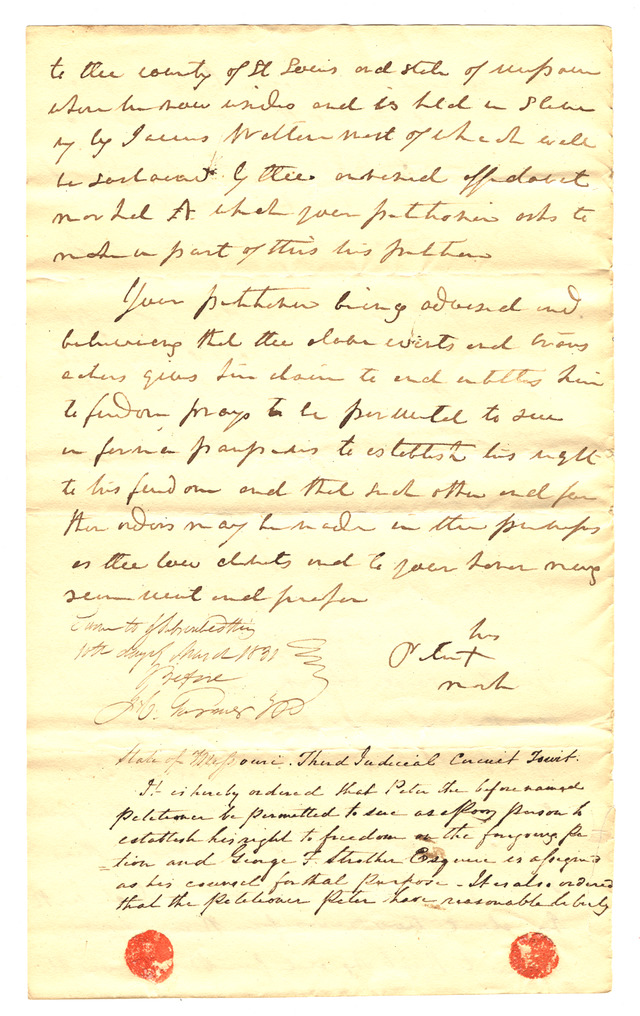 to the county of St Louis and State of Missouri
where he now resides and is held in Slave
ry by James Walton most of which will
be sustained by the annexed affidavit
marked A which your petitioner asks to
make a part of this his petition
Your petitioner being advised and
believing that the above facts and
give him claim to and entitles him
to freedom prays to be permitted to sue
in forma pauperis to establish his right
to his freedom and that such other and fur
ther orders may be made in the premises
as the law directs and to your honor may
seem meet and proper
Sworn to & subscribed this
10th day of March 1831
before
his
Peter X
mark
State of Missouri. Third Judicial Circuit Towit.
It is hereby ordered that Peter the before named
Petitioner be permitted to sue as a Poor person to
establish his right to freedom on the foregoing Pe-
-tion and George F. Strother Esquire is assigned
as his counsel for that purpose - It is also ordered
that the Petitioner Peter have reasonable liberty